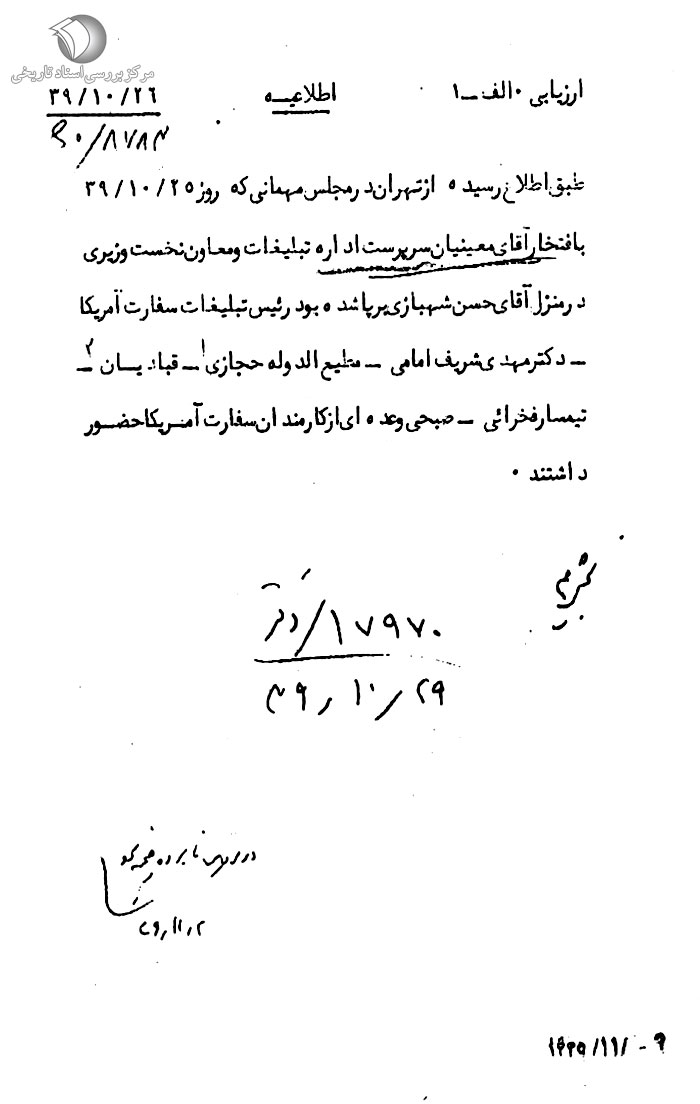 مرکز بررسی اسناد تاریخی
ارزیابی ۰ الف ــ ۱
اطلاعیــه
۳۹/۱۰/۲۶
۳۰/۸۷۸۳
طبق اطلاع رسیده از تهران در مجلس مهمانی که روز ۳۹/۱۰/۲۵
بافتخار آقای معینیان سرپرست اداره تبلیغات و معاون نخست وزیری
در منزل آقای حسن شهبازی برپا شده بود رئیس تبلیغات سفارت آمریکا
ــ دکتر مهدی شریف امامی ــ مطیع الدوله حجازی۱ ــ قبادیـــان۲ ــ
تیمسار فخرائی ــ صبحی وعده ای از کارمندان سفارت آمـریکا حضــور
داشتند ۰
۱۷۹۷۰/دفتر
۲۹/۱۰/۳۹
در پرونده نامبرده ضمیمه شود
۳۹/۱۱/۲